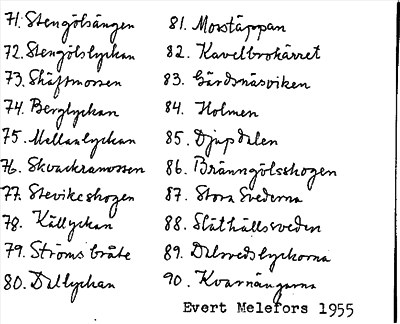 71. Stengölsängen
72. Stengölslyckan
73. Skäftmossen
74. Berglyckan
75. Mellanlyckan
76. Skvackramossen
77. Stevikeskogen
78. Källyckan
79. Ströms bråte
80. Dellyckan
81. Mosstäppan
82. Kavelbrokärret
83. Gärdsnäsviken
84. Holmen
85. Djupdalen
86. Bränngölsskogen
87. Stora Svederna
88. Slåthällssveden
89. Dalsvedslyckorna
90. Kvarnängarna
Evert Melefors 1955